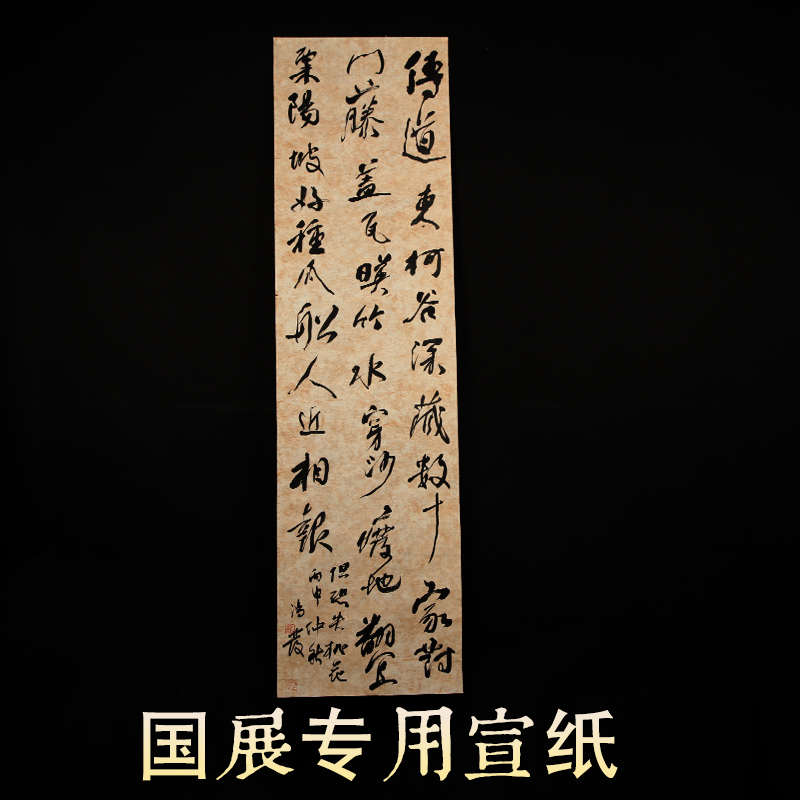 傳道東柯谷深藏數十家對
門藤蓋瓦暎竹水穿沙瘦地翻宜
粟陽坡好種瓜船人近相報
但恐失桃花
丙申仲秋
国展专用宣纸